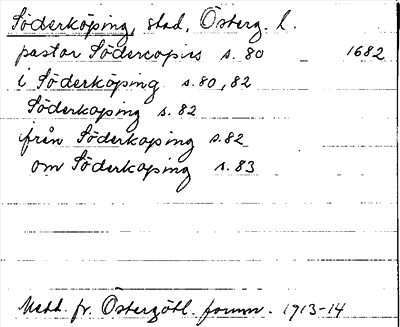 Söderköping, stad, Österg. l.
pastor Södercopies s. 80 1682
i Söderköping s. 80, 82
Söderkoping s. 82
från Söderkoping s. 82
om Söderkoping s. 83
Medd. fr. Östergötl. fornm. 1913-14